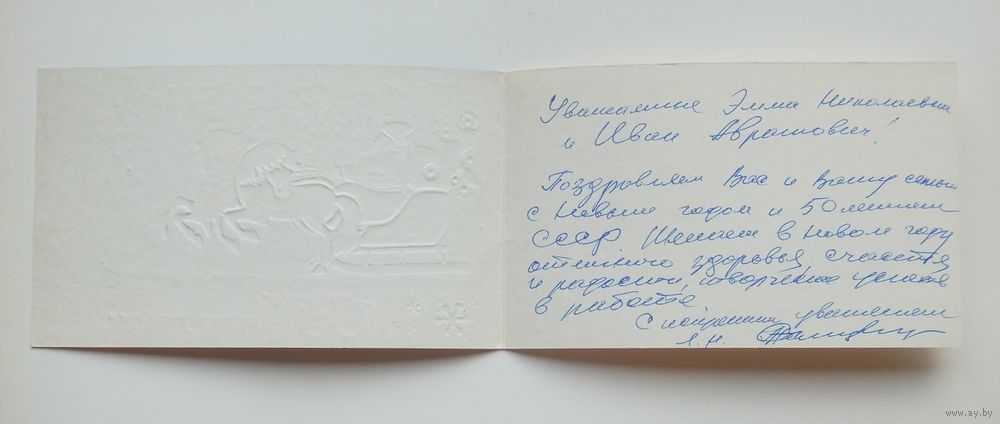 Уважаемые Эмма Николаевна
и Иван Абрамович!
Поздравляем Вас и Вашу семью
с Новым годом и 50 летием
СССР. Желаем в новом году
отличного здоровья, счастья
и радости, творческих успехов
в работе.
С искренним уважением
www.ay.by